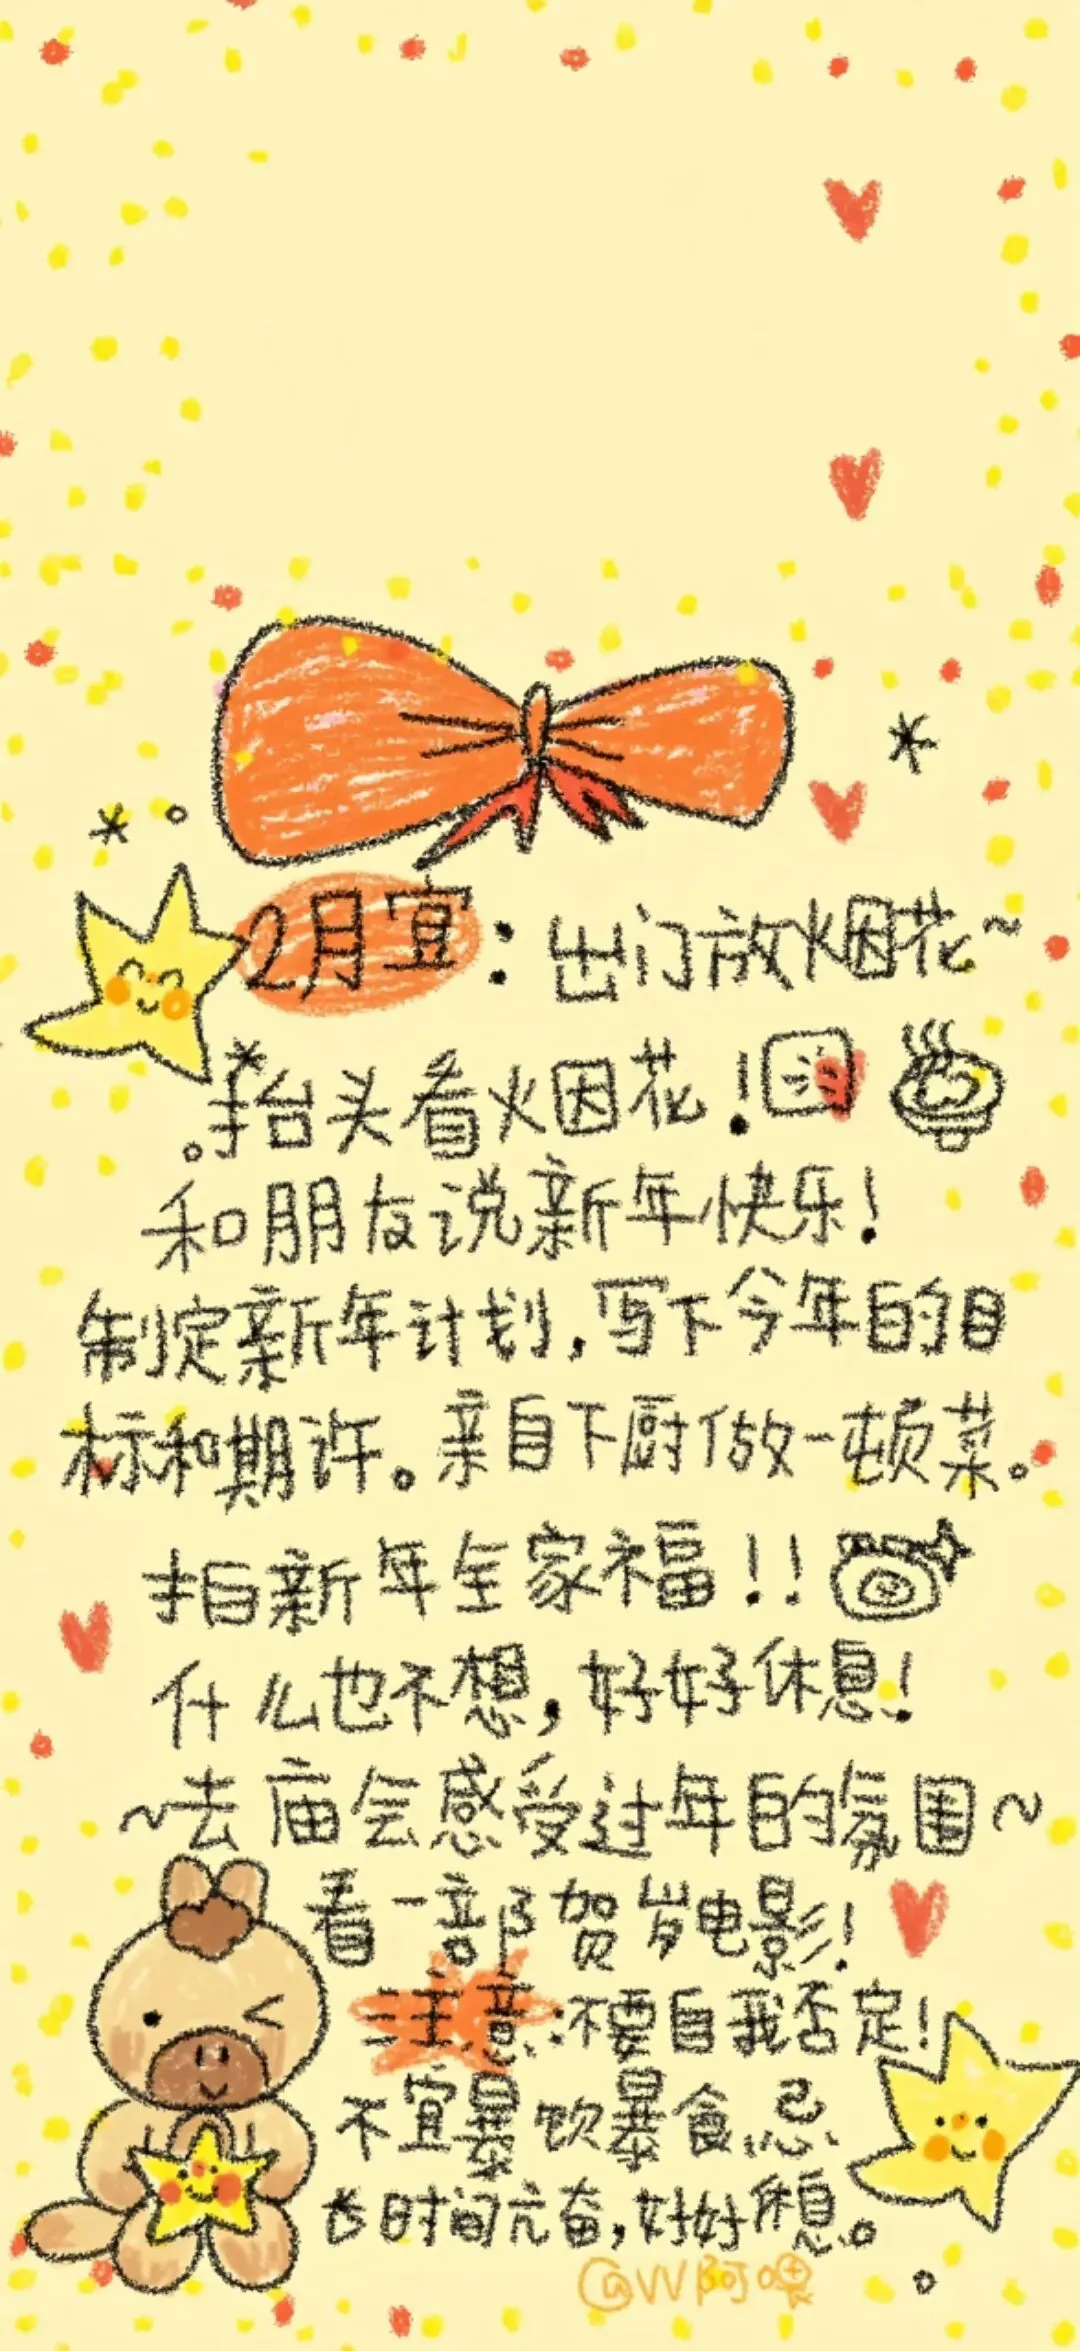 2月宜：出门放烟花~
抬头看烟花！
和朋友说新年快乐！
制定新年计划，写下今年的目
标和期许。亲自下厨做一顿菜。
拍新年全家福！！
什么也不想，好好休息！
~去庙会感受过年的氛围~
看一部贺岁电影！
注意：不要自我否定！
不宜暴饮暴食，忌
长时间亢奋，好好休息。